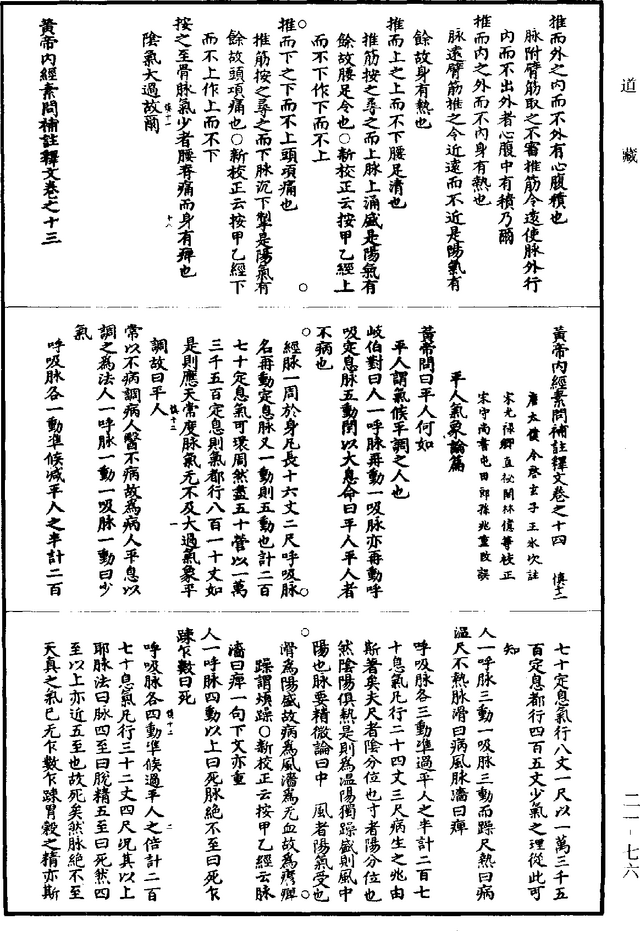 道藏
推而外之内而不外有心腹積也
脉附臂筋取之不審推筋令遠使脉外行
内而不出外者心腹中有積乃爾
推而内之外而不内身有熱也
脉遠臂筋推之令近遠而不近是陽氣有
餘故身有熱也
推而上之上而不下腰足清也
推筋按之尋之而上脉上涌盛是陽氣有
餘故腰足令也○新校正云按甲乙經上
而不下作下而不上
推而下之下而不上頭項痛也
推筋按之尋之而下脉沉下掣是陽氣有
餘故頭項痛也○新校正云按甲乙經下
而不上作上而不下
按之至骨脉氣少者腰脊痛而身有痺也
陰氣大過故爾
黃帝内經素問補註釋文卷之十三
黃帝内經素問補註釋文卷之十四 慎十二
唐太僕令啓玄子王冰次註
宋光禄卿直祕閣林億等校正
宋守尚書屯田郎孫兆重改誤
平人氣象論篇
黃帝問曰平人何如
平人謂氣候平調之人也
岐伯對曰人一呼脉再動一吸脉亦再動呼
吸定息脉五動閏以大息命曰平人平人者
不病也
經脉一周於身凡長十六丈二尺呼吸脉
各再動定息脉又一動則五動也計二百
七十定息氣可環周然盡五十營以一萬
三千五百定息則氣都行八百一十丈如
是則應天常度脉氣无不及大過氣象平
調故曰平人
常以不病調病人醫不病故爲病人平息以
調之爲法人一呼脉一動一吸脉一動曰少
氣
呼吸脉各一動準候減平人之半計二百
七十定息氣行八丈一尺以一萬三千五
百定息都行四百五丈少氣之理從此可
知
人一呼脉三動一吸脉三動而躁尺熱曰病
温尺不熱脉滑曰病風脉濇曰痺
呼吸脉各三動準過平人之半計二百七
十息氣凡行二十四丈三尺病生之兆由
斯著矣夫尺者陰分位也寸者陽分位也
然陰陽俱熱是則爲温陽獨躁盛則風中
陽也脉要精微論曰中 風者陽氣受也
滑爲陽盛故病爲風濇爲无血故爲㾓痺
躁謂煩躁○新校正云按甲乙經云脉
濇曰痺一句下文亦重
人一呼脉四動以上曰死脉絶不至曰死乍
踈乍數曰死
呼吸脉各四動準候過平人之倍計二百
七十息氣凡行三十二丈四尺况其以上
耶脉法曰脉四至曰脱精五至曰死然四
至以上亦近五至也故死矣然脉絶不至
天真之氣已无乍數乍踈胃穀之精亦斯
二一-七六